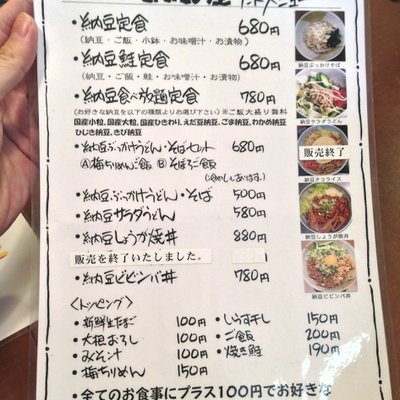 ・納豆定食 680円
(納豆・ご飯・小鉢・お味噌汁・お漬物)
・納豆鮭定食 680円
(納豆・ご飯・鮭・お味噌汁・お漬物)
・納豆食べ放題定食 780円
(お好きな納豆を以下の種類よりお選び下さい)※ご飯大盛り無料
国産小粒, 国産大粒, 国産ひきわり, えだ豆納豆, ごま納豆, わかめ納豆
ひじき納豆, きび納豆
・納豆ぶっかけうどん・そばセット 680円
Ⓐ梅ちりめんご飯 Ⓑそぼろご飯
・納豆ぶっかけうどん・そば 500円
・納豆サラダうどん 580円
・納豆しょうが焼丼 880円
販売を終了いたしました。
・納豆ビビンバ丼 780円
<トッピング>
・新鮮生たまご 100円 ・しらす干し 150円
・大根おろし 100円 ・ご飯 200円
・みそ汁 100円 ・焼き鮭 190円
・梅ちりめん 150円
・全てのお食事にプラス100円でお好きな
納豆ぶっかけそば
納豆サラダうどん
販売終了
納豆タコライス
納豆しょうが焼丼
納豆ビビンバ丼